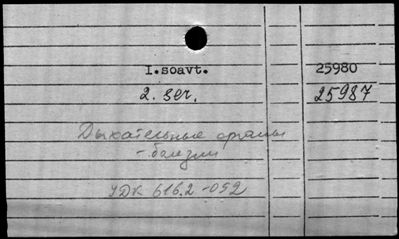 I.soavt. 25980
2. ser. 25987
Дыхательные органы
- болезни
УДК 616.2-052